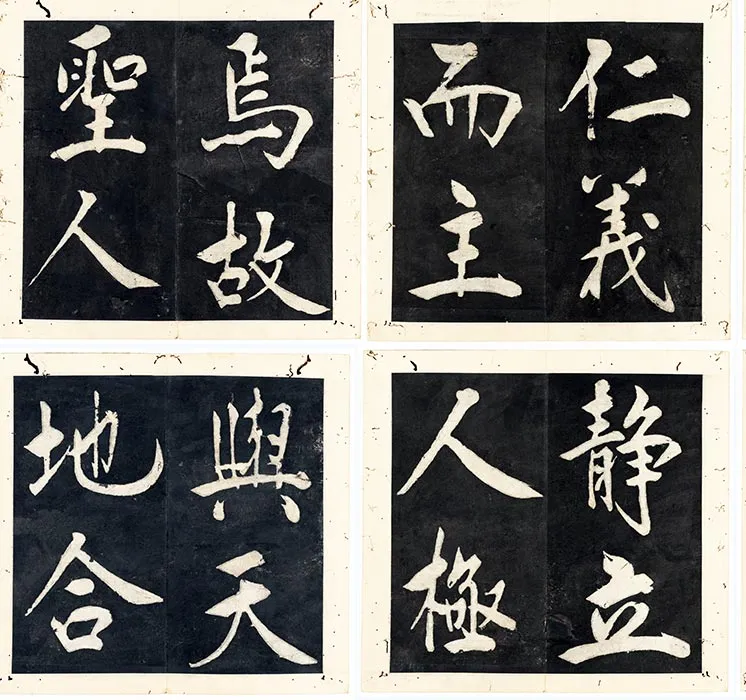 仁義
而主
静立
人極
焉故
聖人
與天
地合